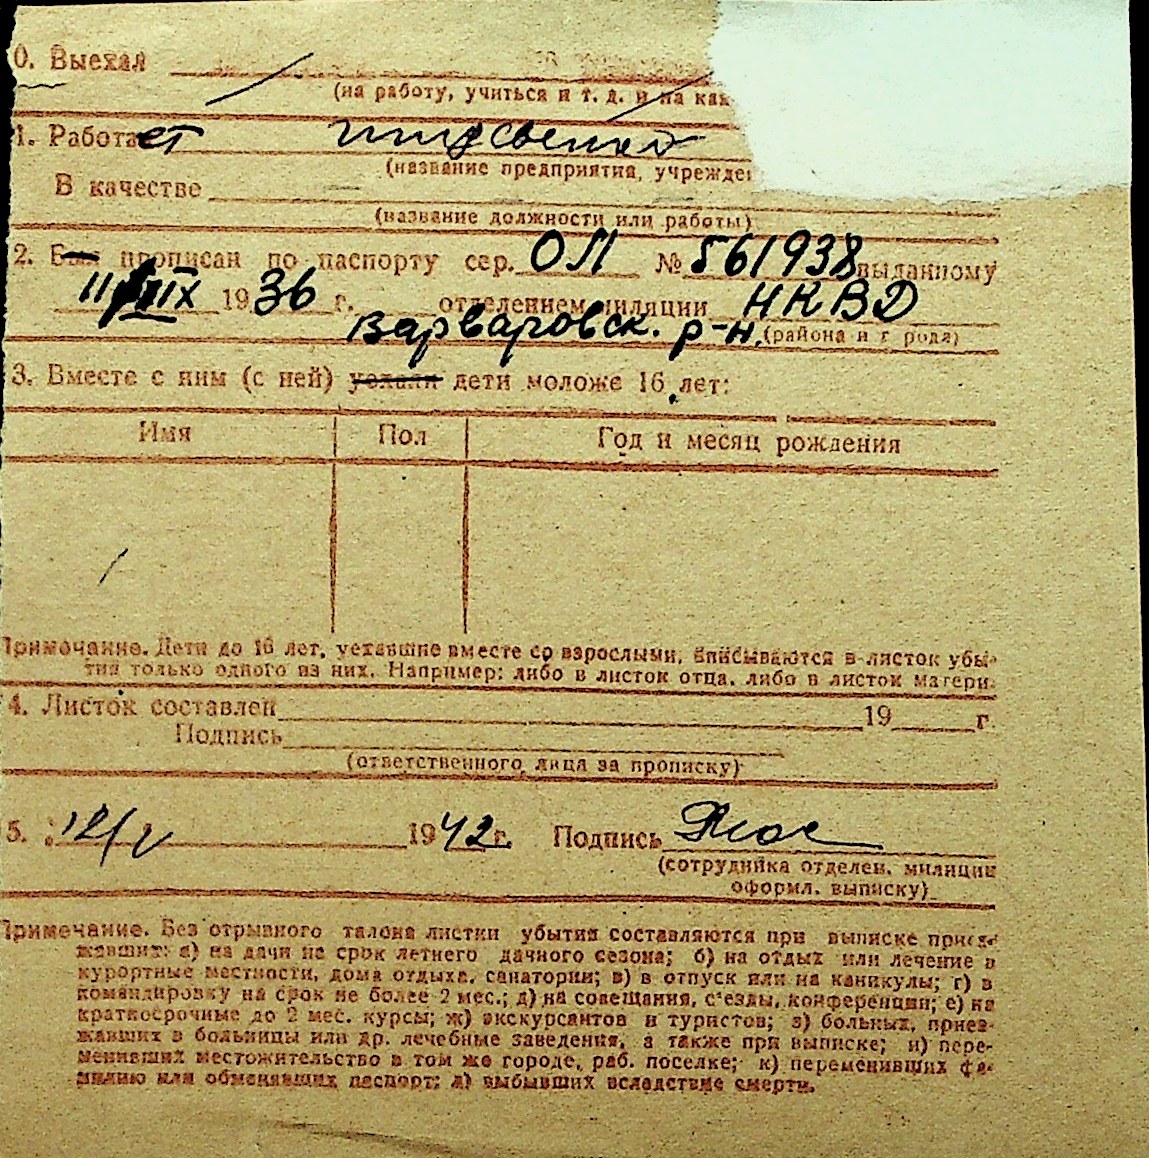 0. Выехал
(на работу, учиться и т. д. и на как
1. Работает иждивенка
(название предприятия, учрежде
В качестве
(название должности или работы)
2. Был прописан по паспорту сер. ОЛ № 561938 выданному
11/IX 1936 г. отделением милиции НКВД
Варваровск. р-н. (района и города)
3. Вместе с ним (с ней) уехали дети моложе 16 лет:
Имя Пол Год и месяц рождения
Примечание. Дети до 16 лет, уехавшие вместе со взрослыми, вписываются в листок убы-
тия только одного из них. Например: либо в листок отца, либо в листок матери.
4. Листок составлен 19 г.
Подпись
(ответственного лица за прописку)
5. 12/V 1942 г. Подпись
(сотрудника отделен. милиции
оформл. выписку)
Примечание. Без отрывного талона листки убытия составляются при выписке приез-
жавших: а) на дачи на срок летнего дачного сезона; б) на отдых или лечение в
курортные местности, дома отдыха, санатории; в) в отпуск или на каникулы; г) в
командировку на срок не более 2 мес.; д) на совещания, с'езды, конференции; е) на
краткосрочные до 2 мес. курсы; ж) экскурсантов и туристов; з) больных, приез-
жавших в больницы или др. лечебные заведения, а также при выписке; и) пере-
менивших местожительство в том же городе, раб. поселке; к) переменивших фа-
милию или обменявших паспорт; л) выбывших вследствие смерти.